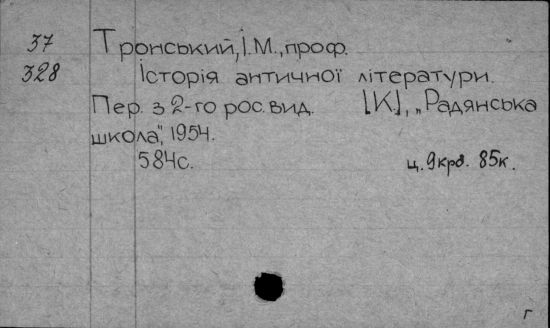 37 Тронський, І.М., проф.
328 Історія античної літератури.
Пер. з 2-го рос. вид. [К], „Радянська
школа", 1954.
584с. ц. 9крб. 85к.
г